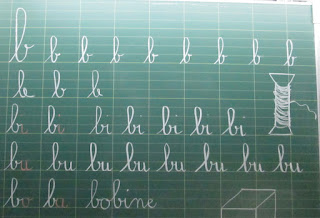 b b b b b b b b b
b b b
bi bi bi bi bi bi bi
bu bu bu bu bu bu bu bu
bo ba bobine